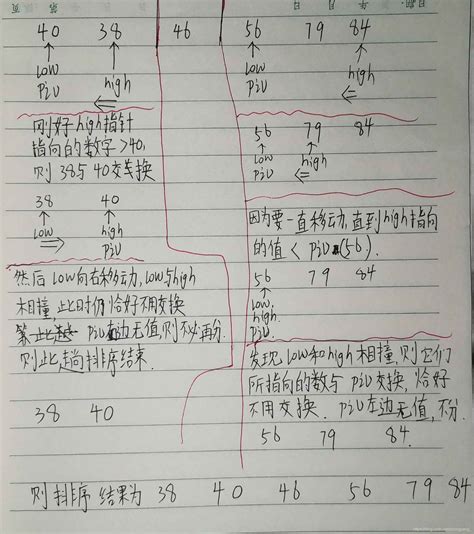 40 38 46 56 79 84
↑ ↑
low high
piv ⇐
刚好high指针
指向的数字>40,
则38与40交换
38 40
↑ ↑
low high
⇒ piv
然后low向右移动,low与high
相撞,此时仍恰好不用交换
piv左边无值,则不必再分.
则此趟排序结束
38 40
↑ ↑
low high
piv ⇐
56 79 84
↑ ↑
low high
piv ⇐
因为要一直移动,直到high指向
的值<piv(56).
56 79 84
↑
low.
high.
piv.
发现low和high相撞,则它们
所指向的数与piv交换,恰好
不用交换. piv左边无值,不分.
56 79 84.
则排序结果为 38 40 46 56 79 84